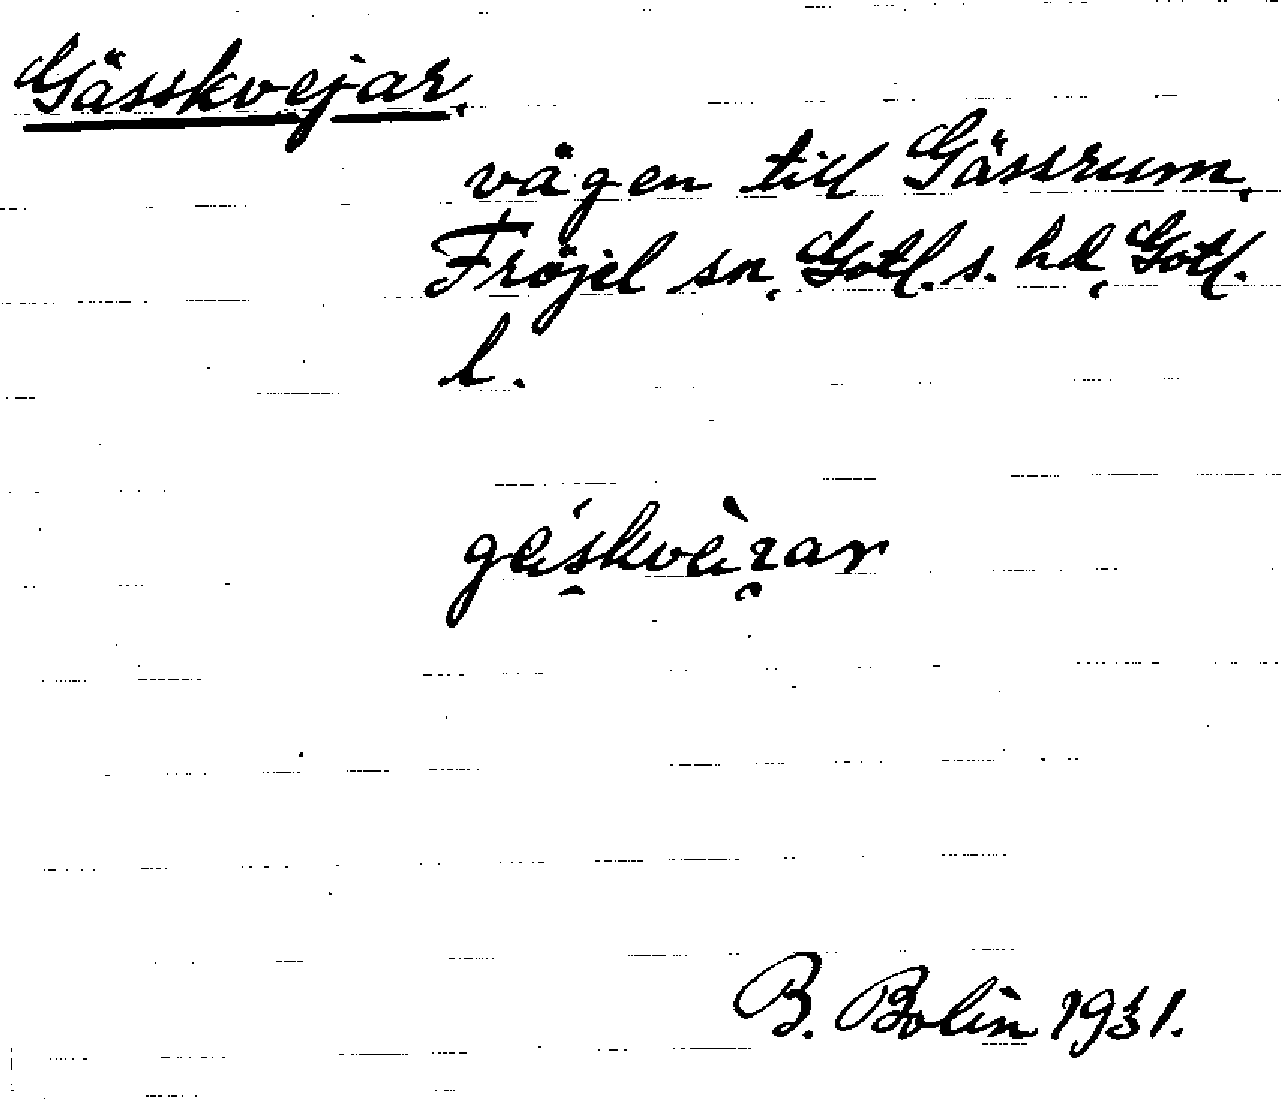 Gässkvejar.
vägen till Gässrum,
Fröjel sn, Gotl. s. hd, Gotl.
l.
B. Bolin 1931.